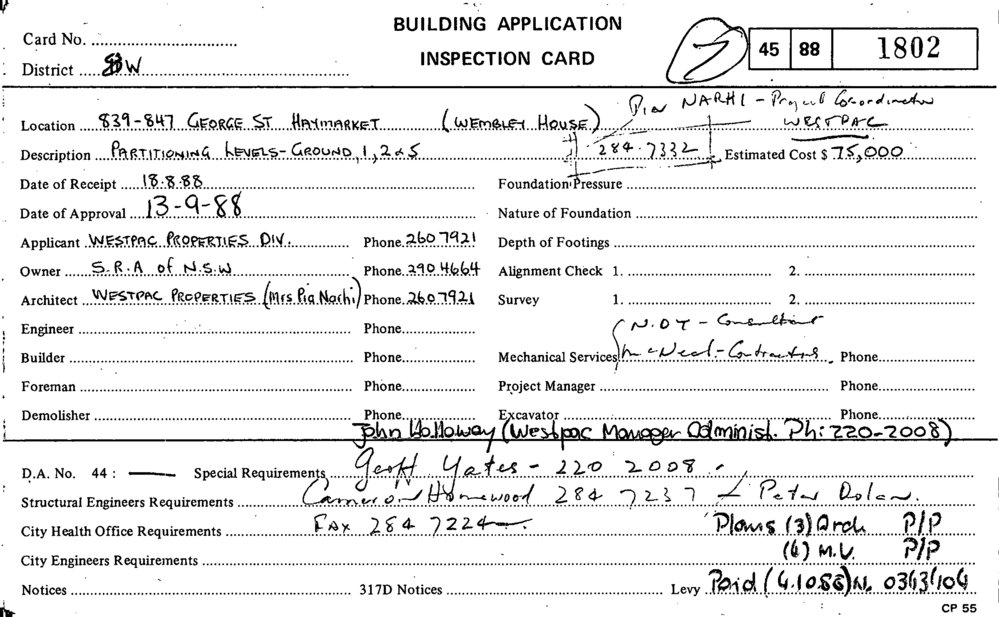 BUILDING APPLICATION
INSPECTION CARD
Card No.
District W
7
45 88 1802
Pia NARHI - Project Coordinator
WESTPAC
284.7332
Location 839-847 GEORGE ST HAYMARKET (WEMBLEY HOUSE)
Description PARTITIONING LEVELS-GROUND, 1, 2 & 5 Estimated Cost $ 75,000
Date of Receipt 18.8.88 Foundation Pressure
Date of Approval 13-9-88 Nature of Foundation
Applicant WESTPAC PROPERTIES DIV. Phone 260 7921 Depth of Footings
Owner S.R.A of N.S.W Phone 290 4664 Alignment Check 1. 2.
Architect WESTPAC PROPERTIES (Mrs Pia Narhi) Phone 260 7921 Survey 1. 2.
Engineer Phone N.D.Y - Consultant
Builder Phone Mechanical Services McNeal - Contractors Phone
Foreman Phone Project Manager Phone
Demolisher Phone Excavator Phone
John Holloway (Westpac Manager Administ. Ph: 220-2008)
D.A. No. 44 : — Special Requirements Geoff Yates - 220 2008
Structural Engineers Requirements Cameron Homewood 284 7237 Peter Dolan.
City Health Office Requirements FAX 284 7224 Plans (3) Arch P/P
(6) M.V. P/P
City Engineers Requirements
Notices 317D Notices Levy Paid (4.10.88) N.
CP 55